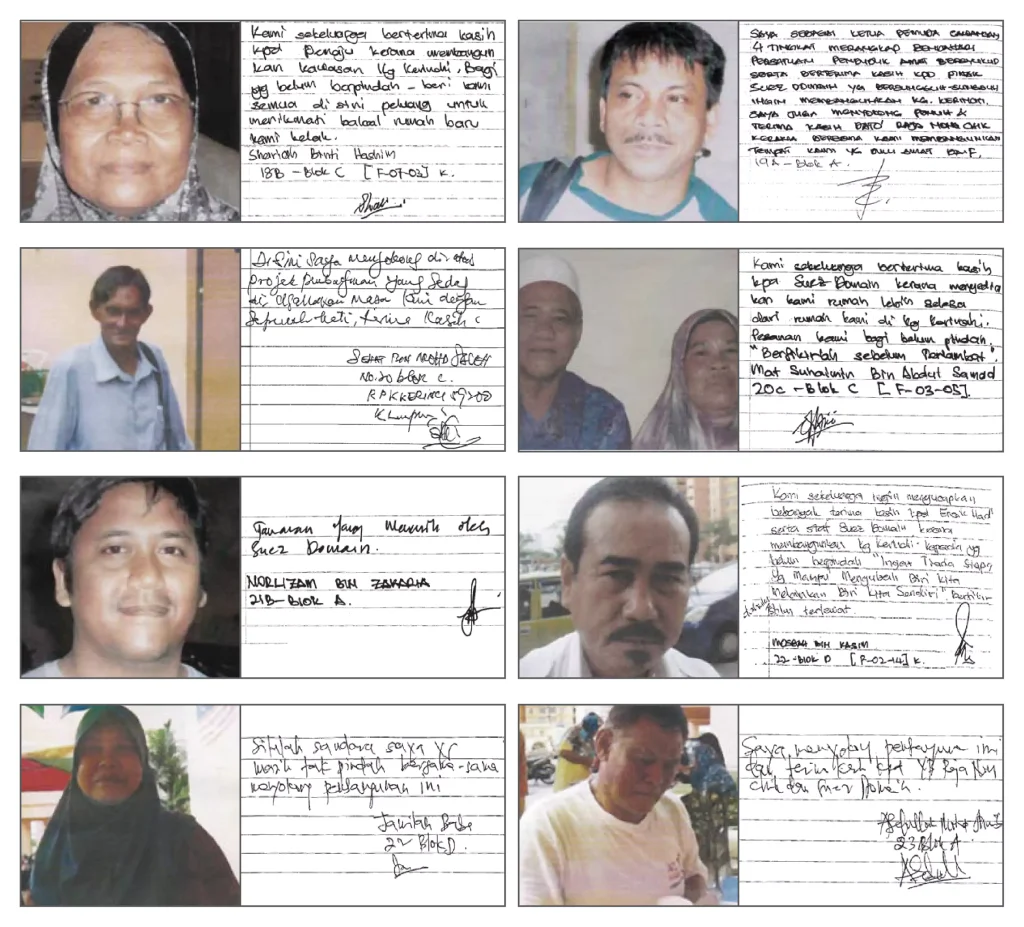 Kami sekeluarga berterima kasih
kpd Pengaju kerana membangun
kan kawasan kg kerinchi. Bagi
yg belum berpindah - beri kami
semua di sini peluang untuk
menikmati bakal rumah baru
kami kelak.
Shariah Binti Hashim
18B - Blok C [F-07-03] K.
SAYA SEBAGAI KETUA PEMUDA
4 TINGKAT MERANGKAP BENDAHARI
PERSATUAN PENDUDUK
SERTA BERTERIMA KASIH KPD PIHAK
SUEZ DOMAIN YG BERSUNGGUH-SUNGGUH
INGIN MEMBANGUNKAN KG. KERINCHI.
SAYA JUGA MENYOKONG PENUH &
TERIMA KASIH DATO' RAJA NONG CHIK
KERANA BERSAMA KAMI MEMBANGUNKAN
TEMPAT KAMI YG DULU
19A - BLOK A.
Di sini saya menyokong di atas
projek pembagunan yang sedang
di usahakan masa kini dengan
sepenuh hati, terima kasih
BIN MOHD SALEH
NO. 20 blok C.
RPKKERINCI 59200
K Lumpur
Kami sekeluarga berterima kasih
kpd Suez Domain kerana menyedia
kan kami rumah lebih selesa
dari rumah kami di kg kerinchi.
Pesanan kami bagi belum pindah.
"Berfikirlah sebelum terlambat".
Mat Suhaimin Bin Abdul Samad
20C - Blok C [F-03-05].
Tawaran yang menarik oleh
Suez Domain.
NORLIZAM BIN ZAKARIA
21B - BLOK A.
Kami sekeluarga ingin mengucapkan
terima kasih kpd Encik
serta staf Suez Domain kerana
membangunkan kg kerinchi. kepada yg
belum berpindah "Ingat Tiada Siapa
Yg Mampu Mengubah Diri Kita
Melainkan Diri Kita Sendiri"
belum terlewat.
BIN KASIM
22 - BLOK D [F-02-14] K.
saudara saya yg
masih tak pindah bersama-sama
menyokong pembangunan ini
Jamilah
22 Blok D.
Saya menyokong pembangunan ini
dan terima kasih kpd YB Raja Nong
chik dan Suez Domain.
23 Blok A